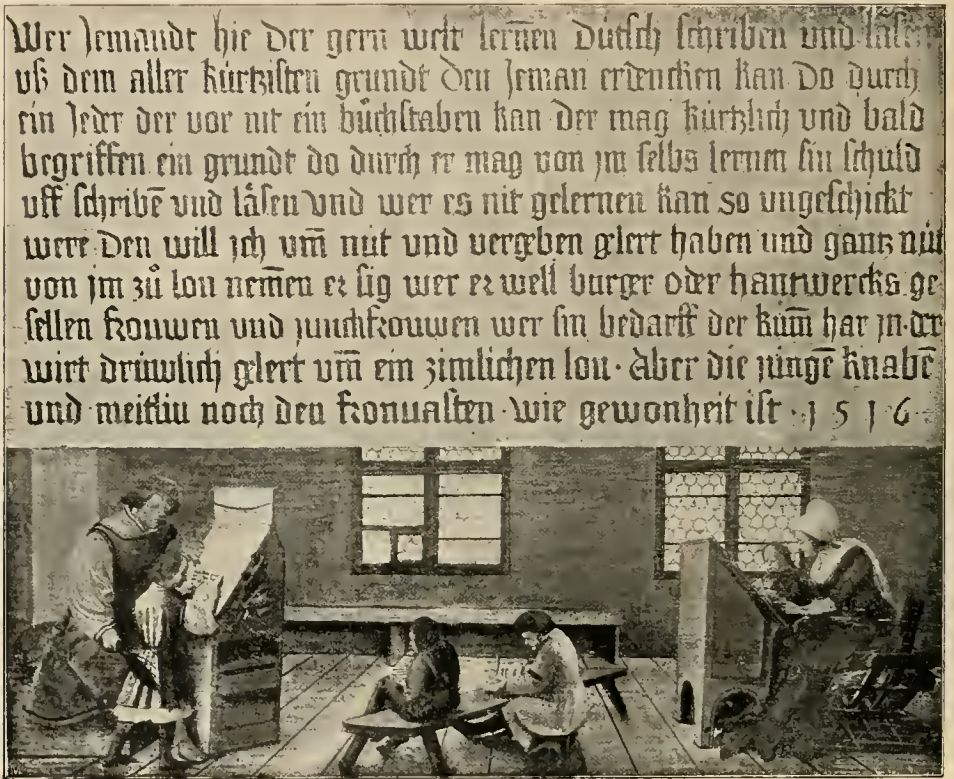 Wer Jemandt hie der gern welt lernen Dütsch schriben und läsen
uß dem aller kürtzisten grundt den Jeman erdencken kan Do durch
ein Jeder der vor nit ein bůchstaben kan der mag kürtzlich und bald
begriffen ein grundt do durch er mag von jm selbs lernen sin schuld
uff schribē vnd läsen Vnd wer es nit gelernen kan so ungeschickt
were Den will jch vm̄ nüt und vergeben glert haben und gantz nüt
von jm zů lon nem̄en er sig wer er well burger oder hantwercks ge
sellen frouwen und junckfrouwen wer sin bedarff der kum̄ har jn · der
wirt drüwlich glert vm̄ ein zimlichen lon · Aber die jungē knabē
und meitlin noch den fronuasten · wie gewonheit ist · 1 5 1 6